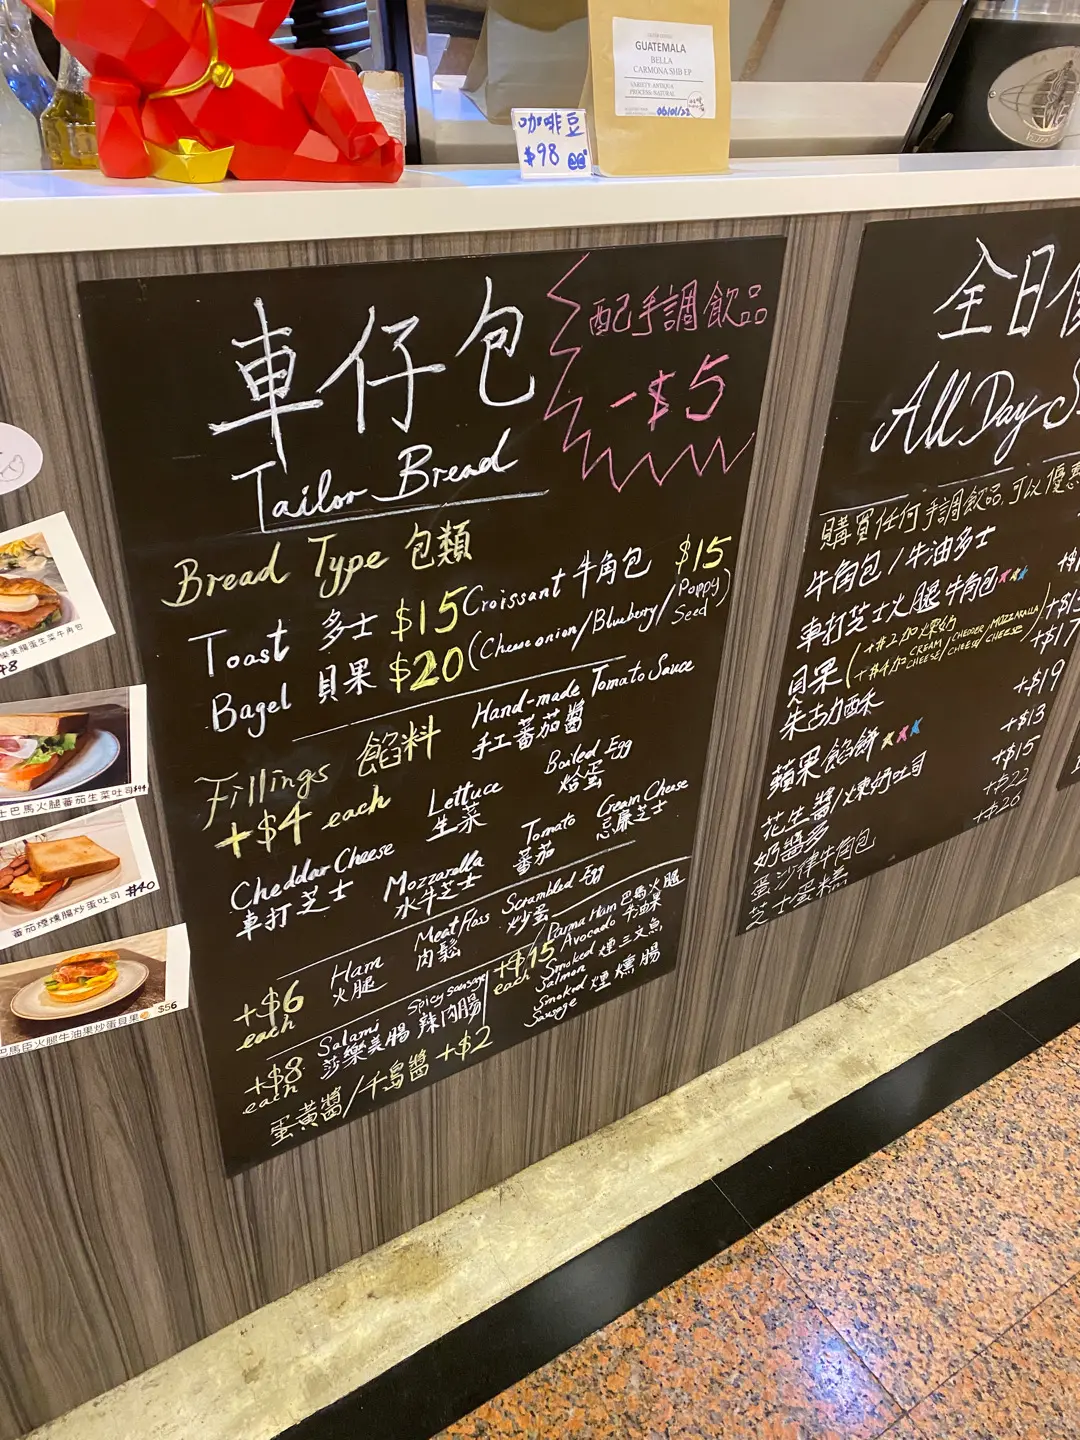 GUATEMALA
BELLA
CARMONA SHB EP
VARIETY: ANTIGUA
PROCESS: NATURAL
06/01/22
咖啡豆
$98
車仔包
Tailor Bread
配手調飲品
-$5
Bread Type 包類
Toast 多士 $15 Croissant 牛角包 $15
Bagel 貝果 $20 (Cheese onion/Blueberry/Poppy Seed)
Fillings 餡料
+$4 each
Hand-made Tomato Sauce
手工蕃茄醬
Lettuce
生菜
Boiled Egg
烚蛋
Cheddar Cheese
車打芝士
Mozzarella
水牛芝士
Tomato
蕃茄
Cream Cheese
忌廉芝士
+$6 each
Ham
火腿
Meat Floss
肉鬆
Scrambled Egg
炒蛋
+$8 each
Salami
莎樂美腸
Spicy sausage
辣肉腸
+$15 each
Parma Ham 巴馬火腿
Avocado 牛油果
Smoked Salmon 煙三文魚
Smoked Sausage 煙燻腸
蛋黃醬/千島醬 +$2
全日
All Day
購買任何手調飲品,可以優惠
牛角包/牛油多士
車打芝士火腿牛角包
貝果 (+$2加煉奶
+$4加 CREAM CHEESE/CHEDDER CHEESE/MOZZARALLA CHEESE)
朱古力酥
蘋果餡餅
花生醬/煉奶吐司
奶醬多
蛋沙律牛角包
芝士蛋糕
+$17
+$19
+$13
+$15
+$22
+$26
樂美腸蛋生菜牛角包
士巴馬火腿蕃茄生菜吐司 $44
蕃茄煙燻腸炒蛋吐司 $40
巴馬臣火腿牛油果炒蛋貝果 $56